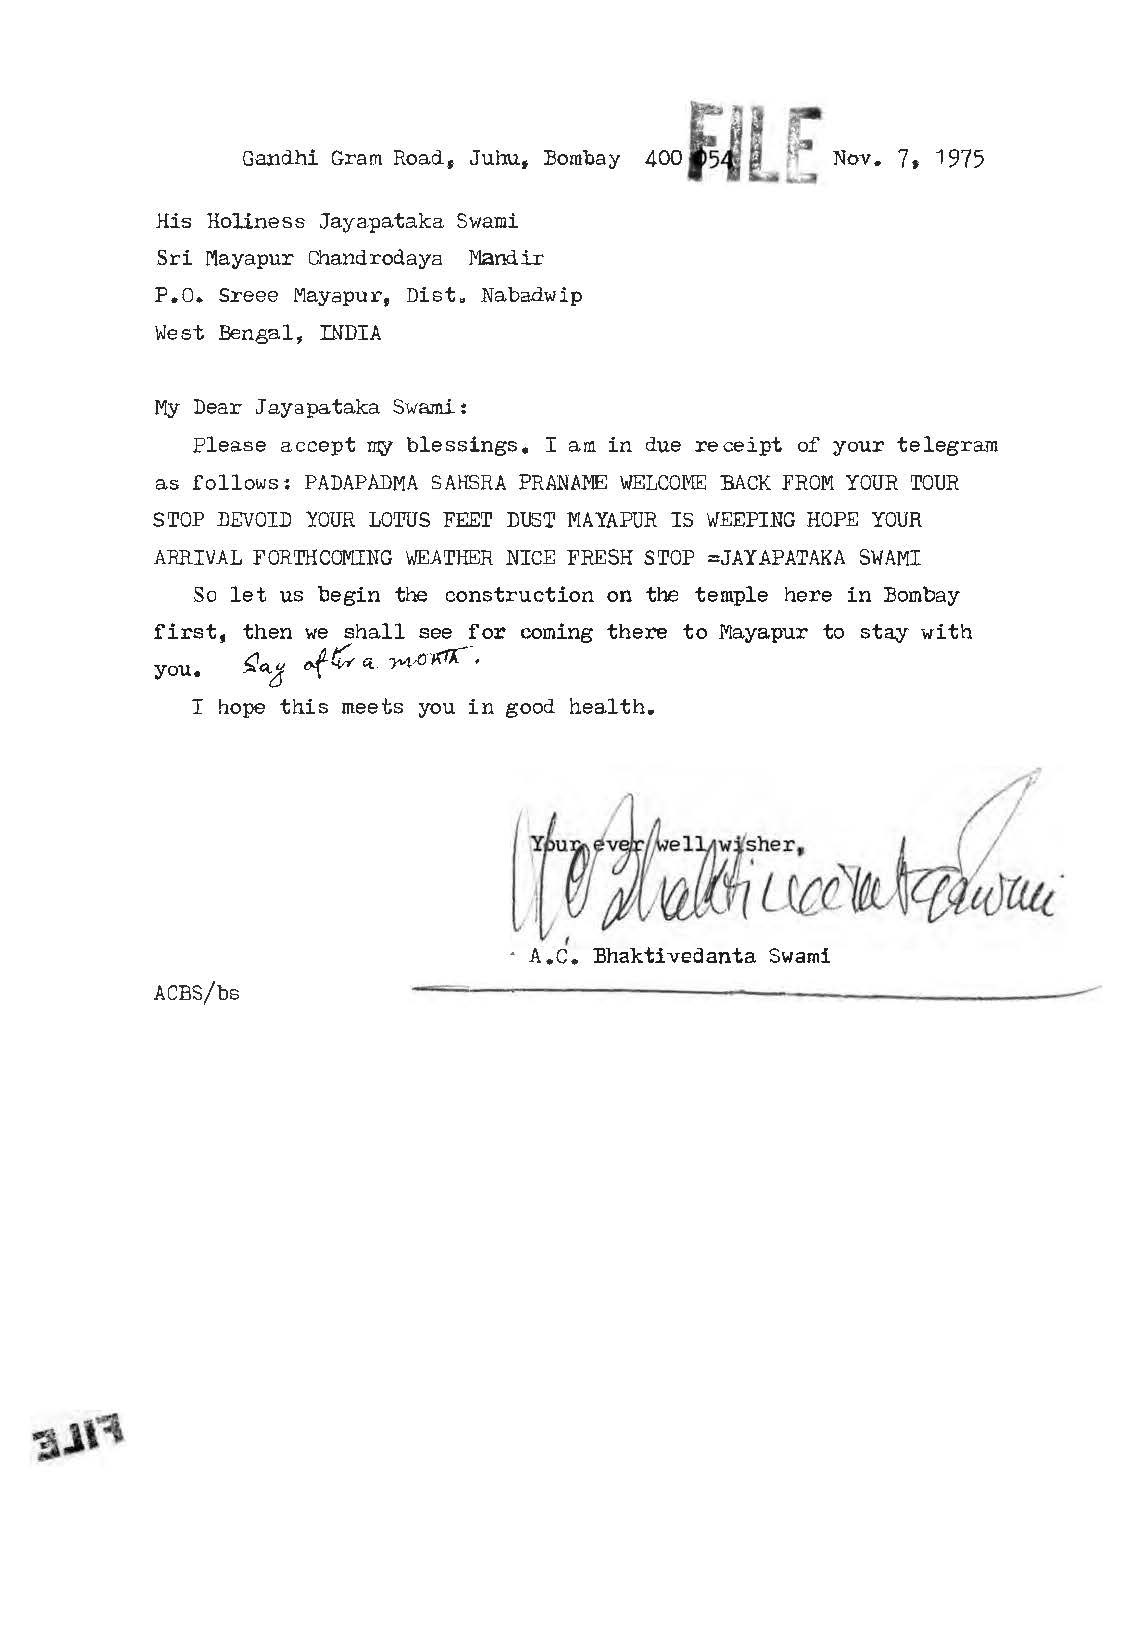 FILE
Gandhi Gram Road, Juhu, Bombay 400 054 Nov. 7, 1975
His Holiness Jayapataka Swami
Sri Mayapur Chandrodaya Mandir
P.O. Sreee Mayapur, Dist. Nabadwip
West Bengal, INDIA
My Dear Jayapataka Swami:
Please accept my blessings. I am in due receipt of your telegram
as follows: PADAPADMA SAHSRA PRANAME WELCOME BACK FROM YOUR TOUR
STOP DEVOID YOUR LOTUS FEET DUST MAYAPUR IS WEEPING HOPE YOUR
ARRIVAL FORTHCOMING WEATHER NICE FRESH STOP =JAYAPATAKA SWAMI
So let us begin the construction on the temple here in Bombay
first, then we shall see for coming there to Mayapur to stay with
you. Say after a month.
I hope this meets you in good health.
Your ever well wisher,
A.C. Bhaktivedanta Swami
A.C. Bhaktivedanta Swami
ACBS/bs
FILE